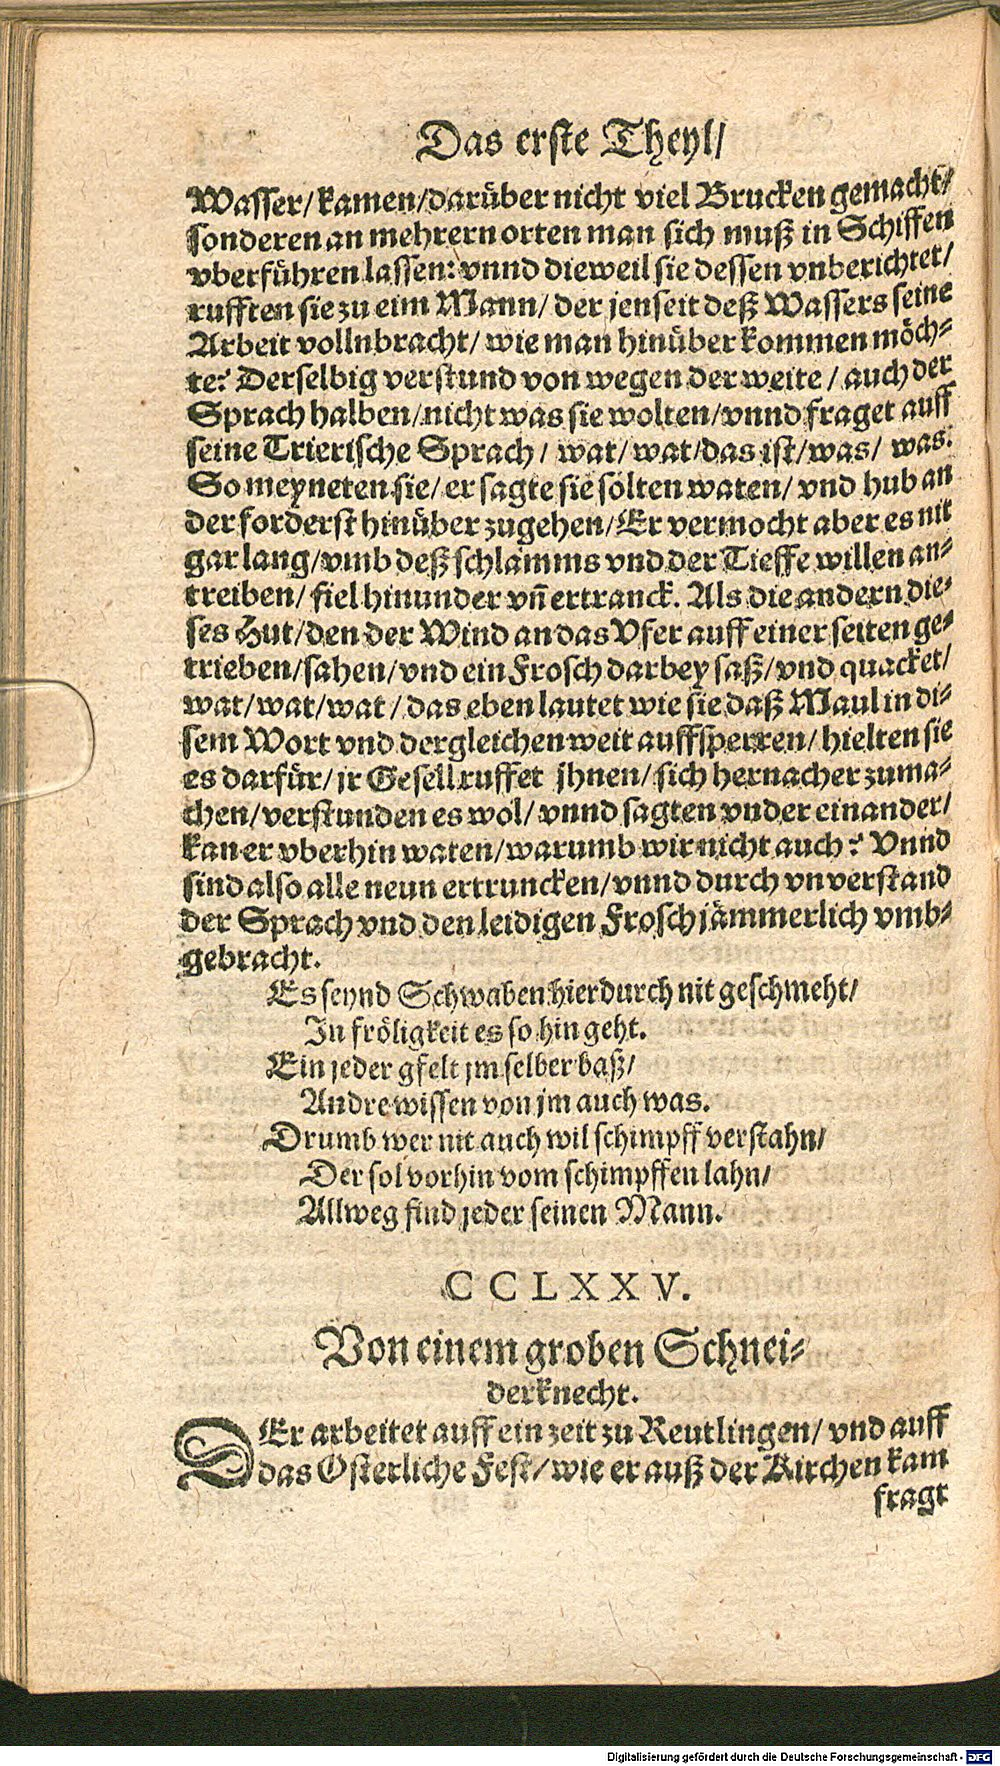 Das erste Theyl/
Wasser/ kamen/ darüber nicht viel Brucken gemacht/
sonderen an mehrern orten man sich muß in Schiffen
vberführen lassen: vnnd dieweil sie dessen vnberichtet/
rufften sie zu eim Mann/ der jenseit deß Wassers seine
Arbeit vollnbracht/ wie man hinüber kommen möch-
te? Derselbig verstund von wegen der weite/ auch der
Sprach halben/ nicht was sie wolten/ vnnd fraget auff
seine Trierische Sprach/ wat/ wat/ das ist/ was/ was.
So meyneten sie/ er sagte sie sölten waten/ vnd hub an
der forderst hinüber zugehen/ Er vermocht aber es nit
gar lang/ vmb deß schlamms vnd der Tieffe willen an-
treiben/ fiel hinunder vñ ertranck. Als die andern die-
ses Hut/ den der Wind an das Vfer auff einer seiten ge-
trieben/ sahen/ vnd ein Frosch darbey saß/ vnd quacket/
wat/ wat/ wat/ das eben lautet wie sie daß Maul in di-
sem Wort vnd dergleichen weit auffsperren/ hielten sie
es darfür/ jr Gesell ruffet jhnen/ sich hernacher zuma-
chen/ verstunden es wol/ vnnd sagten vnder einander/
kan er vberhin waten/ warumb wir nicht auch? Vnnd
sind also alle neun ertruncken/ vnnd durch vnverstand
der Sprach vnd den leidigen Frosch jämmerlich vmb-
gebracht.
Es seynd Schwaben hierdurch nit geschmeht/
In fröligkeit es so hin geht.
Ein jeder gfelt jm selber baß/
Andre wissen von jm auch was.
Drumb wer nit auch wil schimpff verstahn/
Der sol vorhin vom schimpffen lahn/
Allweg find jeder seinen Mann.
CCLXXV.
Von einem groben Schnei-
derknecht.
DEr arbeitet auff ein zeit zu Reutlingen/ vnd auff
das Osterliche Fest/ wie er auß der Kirchen kam
fragt
Digitalisierung gefördert durch die Deutsche Forschungsgemeinschaft - DFG